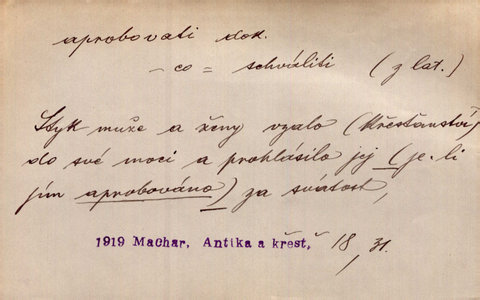 aprobovati dok.
– co = schváliti (z lat.)
Styk muže a ženy vzalo (křesťanství)
do své moci a prohlásilo jej (je-li
jím aprobováno) za svátost,
1919 Machar, Antika a křest, 18, 31.